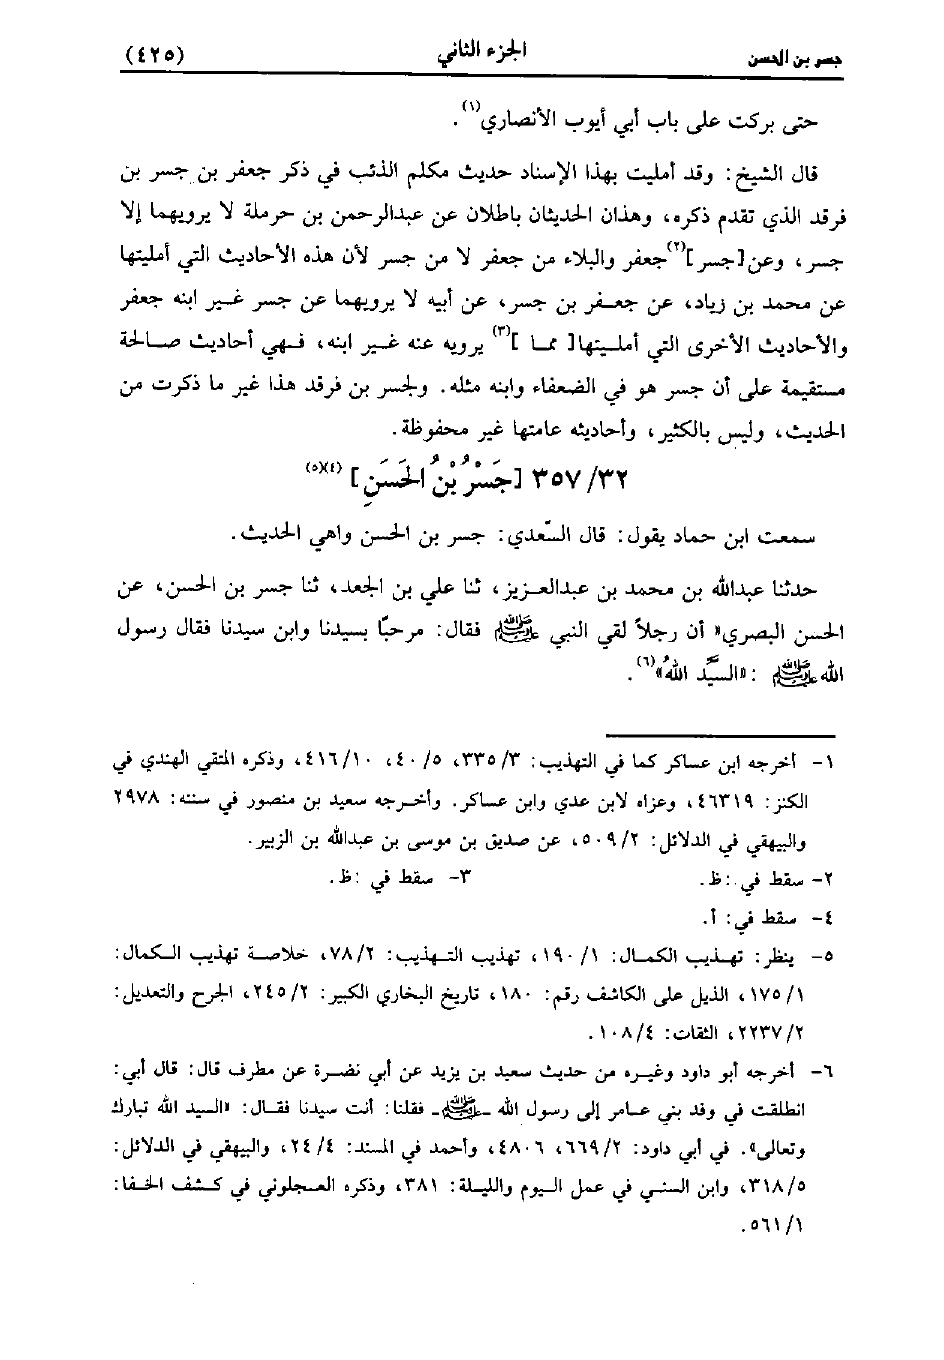 جسر بن الحسن
الجزء الثاني
(٤٢٥)
حتى بركت على باب أبي أيوب الأنصاري(١).
قال الشيخ: وقد أمليت بهذا الإسناد حديث مكلم الذئب في ذكر جعفر بن جسر بن
فرقد الذي تقدم ذكره، وهذان الحديثان باطلان عن عبدالرحمن بن حرملة لا يرويهما إلا
جسر، وعن[جسر](٢)جعفر والبلاء من جعفر لا من جسر لأن هذه الأحاديث التي أمليتها
عن محمد بن زياد، عن جعفر بن جسر، عن أبيه لا يرويهما عن جسر غير ابنه جعفر
والأحاديث الأخرى التي أمليتها[ مما ](٣) يرويه عنه غير ابنه، فهي أحاديث صالحة
مستقيمة على أن جسر هو في الضعفاء وابنه مثله. ولجسر بن فرقد هذا غير ما ذكرت من
الحديث، وليس بالكثير، وأحاديثه عامتها غير محفوظة.
٣٥٧/٣٢ [جَسْرُ بْنُ الحَسَنِ] (٤)(٥)
سمعت ابن حماد يقول: قال السَّعدي: جسر بن الحسن واهي الحديث.
حدثنا عبدالله بن محمد بن عبدالعزيز، ثنا علي بن الجعد، ثنا جسر بن الحسن، عن
الحسن البصري« أن رجلاً لقي النبي ﷺ فقال: مرحبًا بسيدنا وابن سيدنا فقال رسول
الله ﷺ : «السيَّد اللهُ»(٦).
١- أخرجه ابن عساكر كما في التهذيب: ٣٣٥/٣، ٤٠/٥، ٤١٦/١٠، وذكره المتقي الهندي في
الكنز: ٤٦٣١٩، وعزاه لابن عدي وابن عساكر. وأخرجه سعيد بن منصور في سننه: ٢٩٧٨
والبيهقي في الدلائل: ٥٠٩/٢، عن صديق بن موسى بن عبدالله بن الزبير.
٢- سقط في :ظ. ٣- سقط في :ظ.
٤- سقط في: أ.
٥- ينظر: تهذيب الكمال: ١٩٠/١، تهذيب التهذيب: ٧٨/٢، خلاصة تهذيب الكمال:
١٧٥/١، الذيل على الكاشف رقم: ١٨٠، تاريخ البخاري الكبير: ٢٤٥/٢، الجرح والتعديل:
٢٢٣٧/٢، الثقات: ١٠٨/٤.
٦- أخرجه أبو داود وغيره من حديث سعيد بن يزيد عن أبي نضرة عن مطرف قال: قال أبي:
انطلقت في وفد بني عامر إلى رسول الله -ﷺ- فقلنا: أنت سيدنا فقال: «السيد الله تبارك
وتعالى». في أبي داود: ٦٦٩/٢، ٤٨٠٦، وأحمد في المسند: ٢٤/٤، والبيهقي في الدلائل:
٣١٨/٥، وابن السني في عمل اليوم والليلة: ٣٨١، وذكره العجلوني في كشف الخفا:
٥٦١/١.